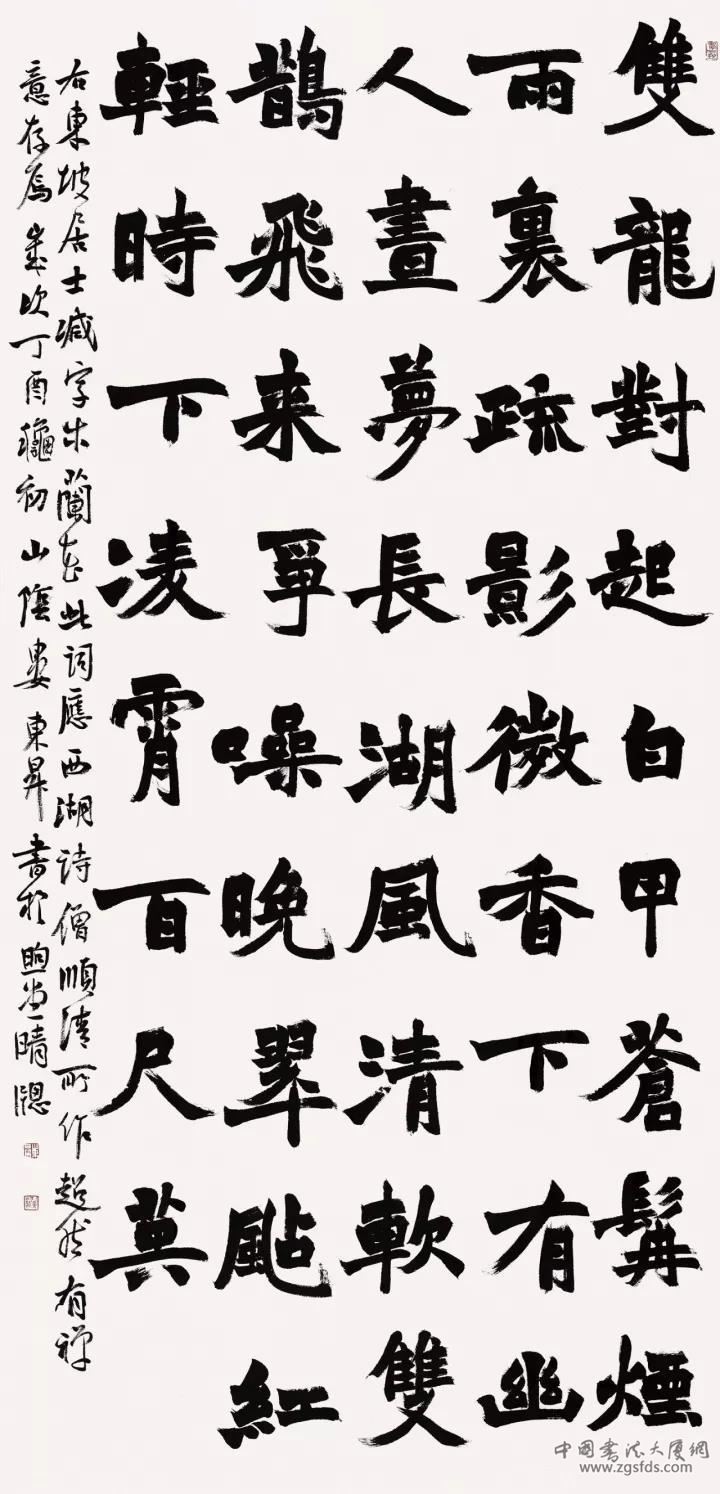 雙龍對起白甲蒼髯煙
雨裏疏影微香下有幽
人晝夢長湖風清軟雙
鵲飛来爭噪晚翠颭紅
輕時下凌霄百尺英
右東坡居士減字木蘭花此詞應西湖詩僧順清所作超然有禅
意存焉歲次丁酉龝初山陰婁東昇書於煦堂晴牕
中國書法大厦網
www.zgsfds.com